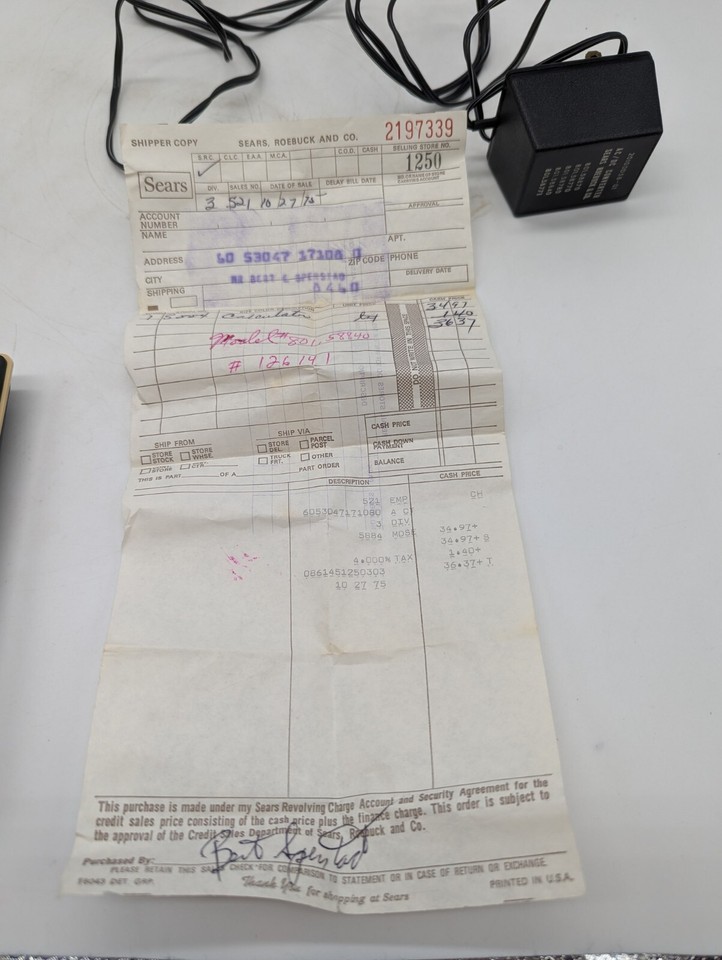 SHIPPER COPY SEARS, ROEBUCK AND CO. 2197339
S.R.C. C.L.C. E.A.A. M.C.A. C.O.D. CASH SELLING STORE NO.
✓ 1250
Sears
DIV. SALES NO. DATE OF SALE DELAY BILL DATE
3 521 10/27/75
ACCOUNT NUMBER APPROVAL
NAME APT.
ADDRESS 60 53047 17108 0 ZIP CODE PHONE
CITY DELIVERY DATE
SHIPPING 0460
CASH PRICE
1 Calculator 34 97
1 40
36 37
Model # 801.58840
# 126141
DO NOT WRITE IN THIS SPACE
SHIP FROM SHIP VIA CASH PRICE
STORE STOCK STORE WHSE. STORE DEL. PARCEL POST CASH DOWN PAYMENT
TRUCK FRT. OTHER BALANCE
THIS IS PART OF A PART ORDER
DESCRIPTION CASH PRICE
521 EMP CH
6053047171080 A C
3 DIV
5884 MDSE 34.97+
34.97+ S
4.000% TAX 1.40+
0861451250303 36.37+ T
10 27 75
This purchase is made under my Sears Revolving Charge Account and Security Agreement for the
credit sales price consisting of the cash price plus the finance charge. This order is subject to
the approval of the Credit Sales Department of Sears, Roebuck and Co.
Purchased By:
PLEASE RETAIN THIS SALES CHECK FOR COMPARISON TO STATEMENT OR IN CASE OF RETURN OR EXCHANGE.
Thank You for shopping at Sears
PRINTED IN U.S.A.